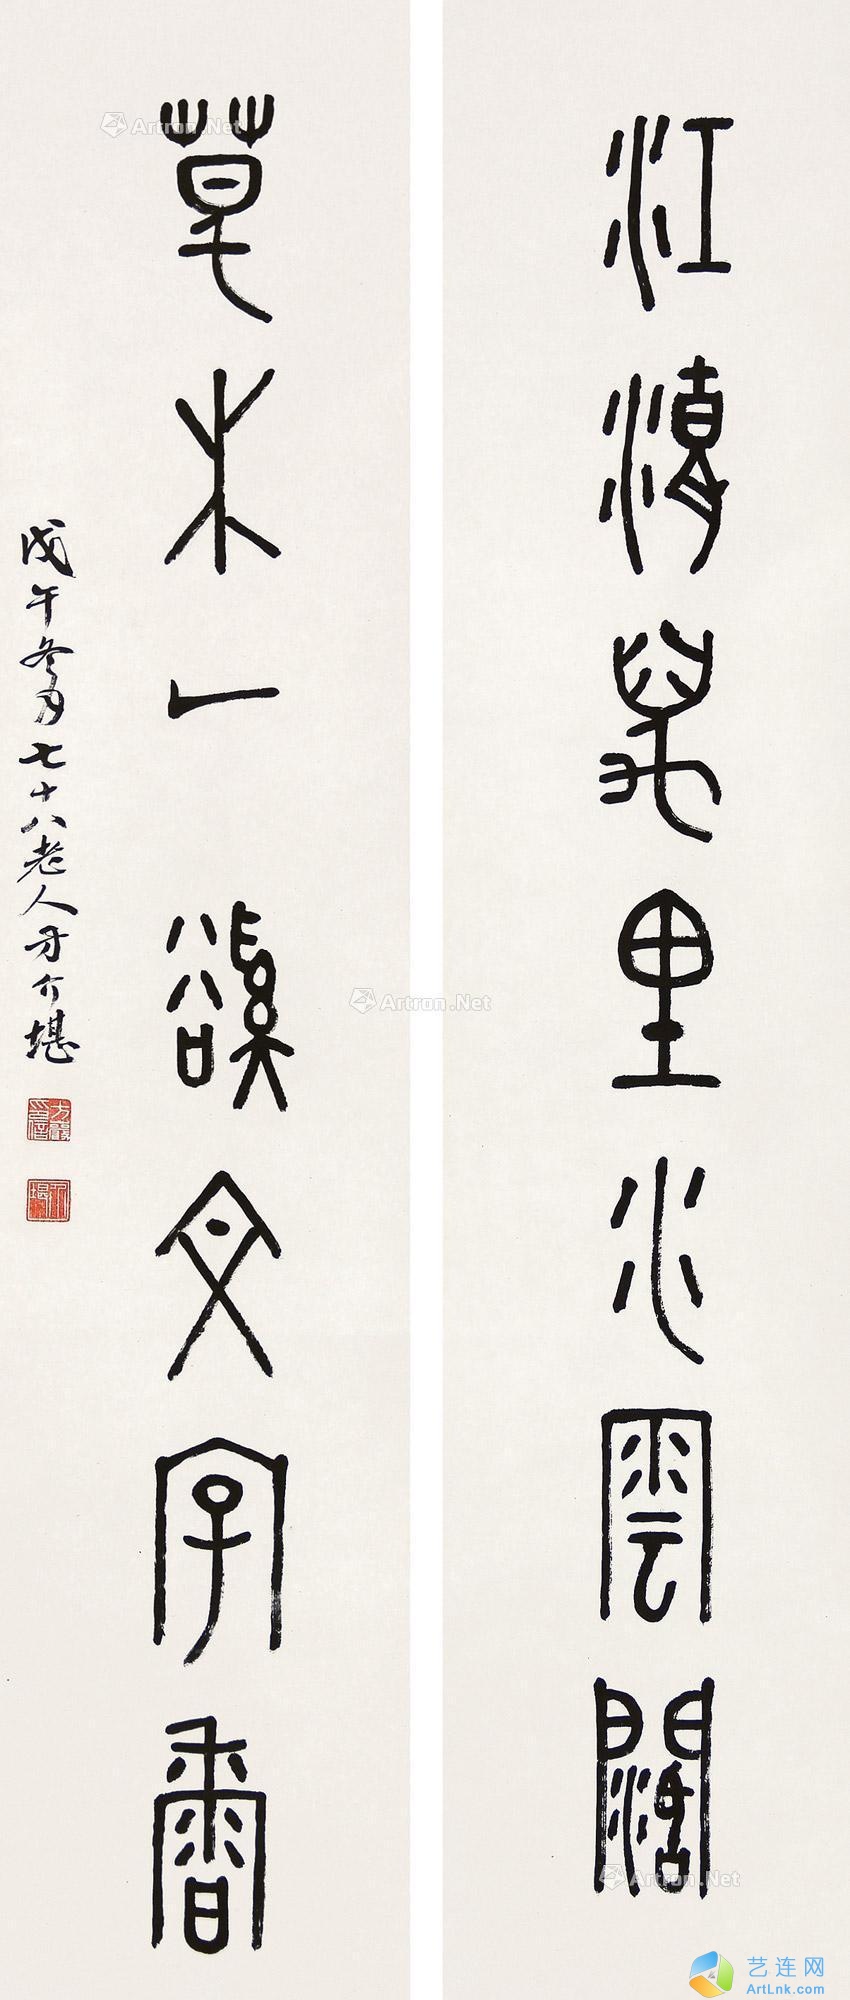 江湖萬里水雲闊
草木一谿文字香
戊午冬月七十八老人方介堪
介堪
Artron.Net
Artron.Net
Artron.Net
艺连网
ArtLnk.com